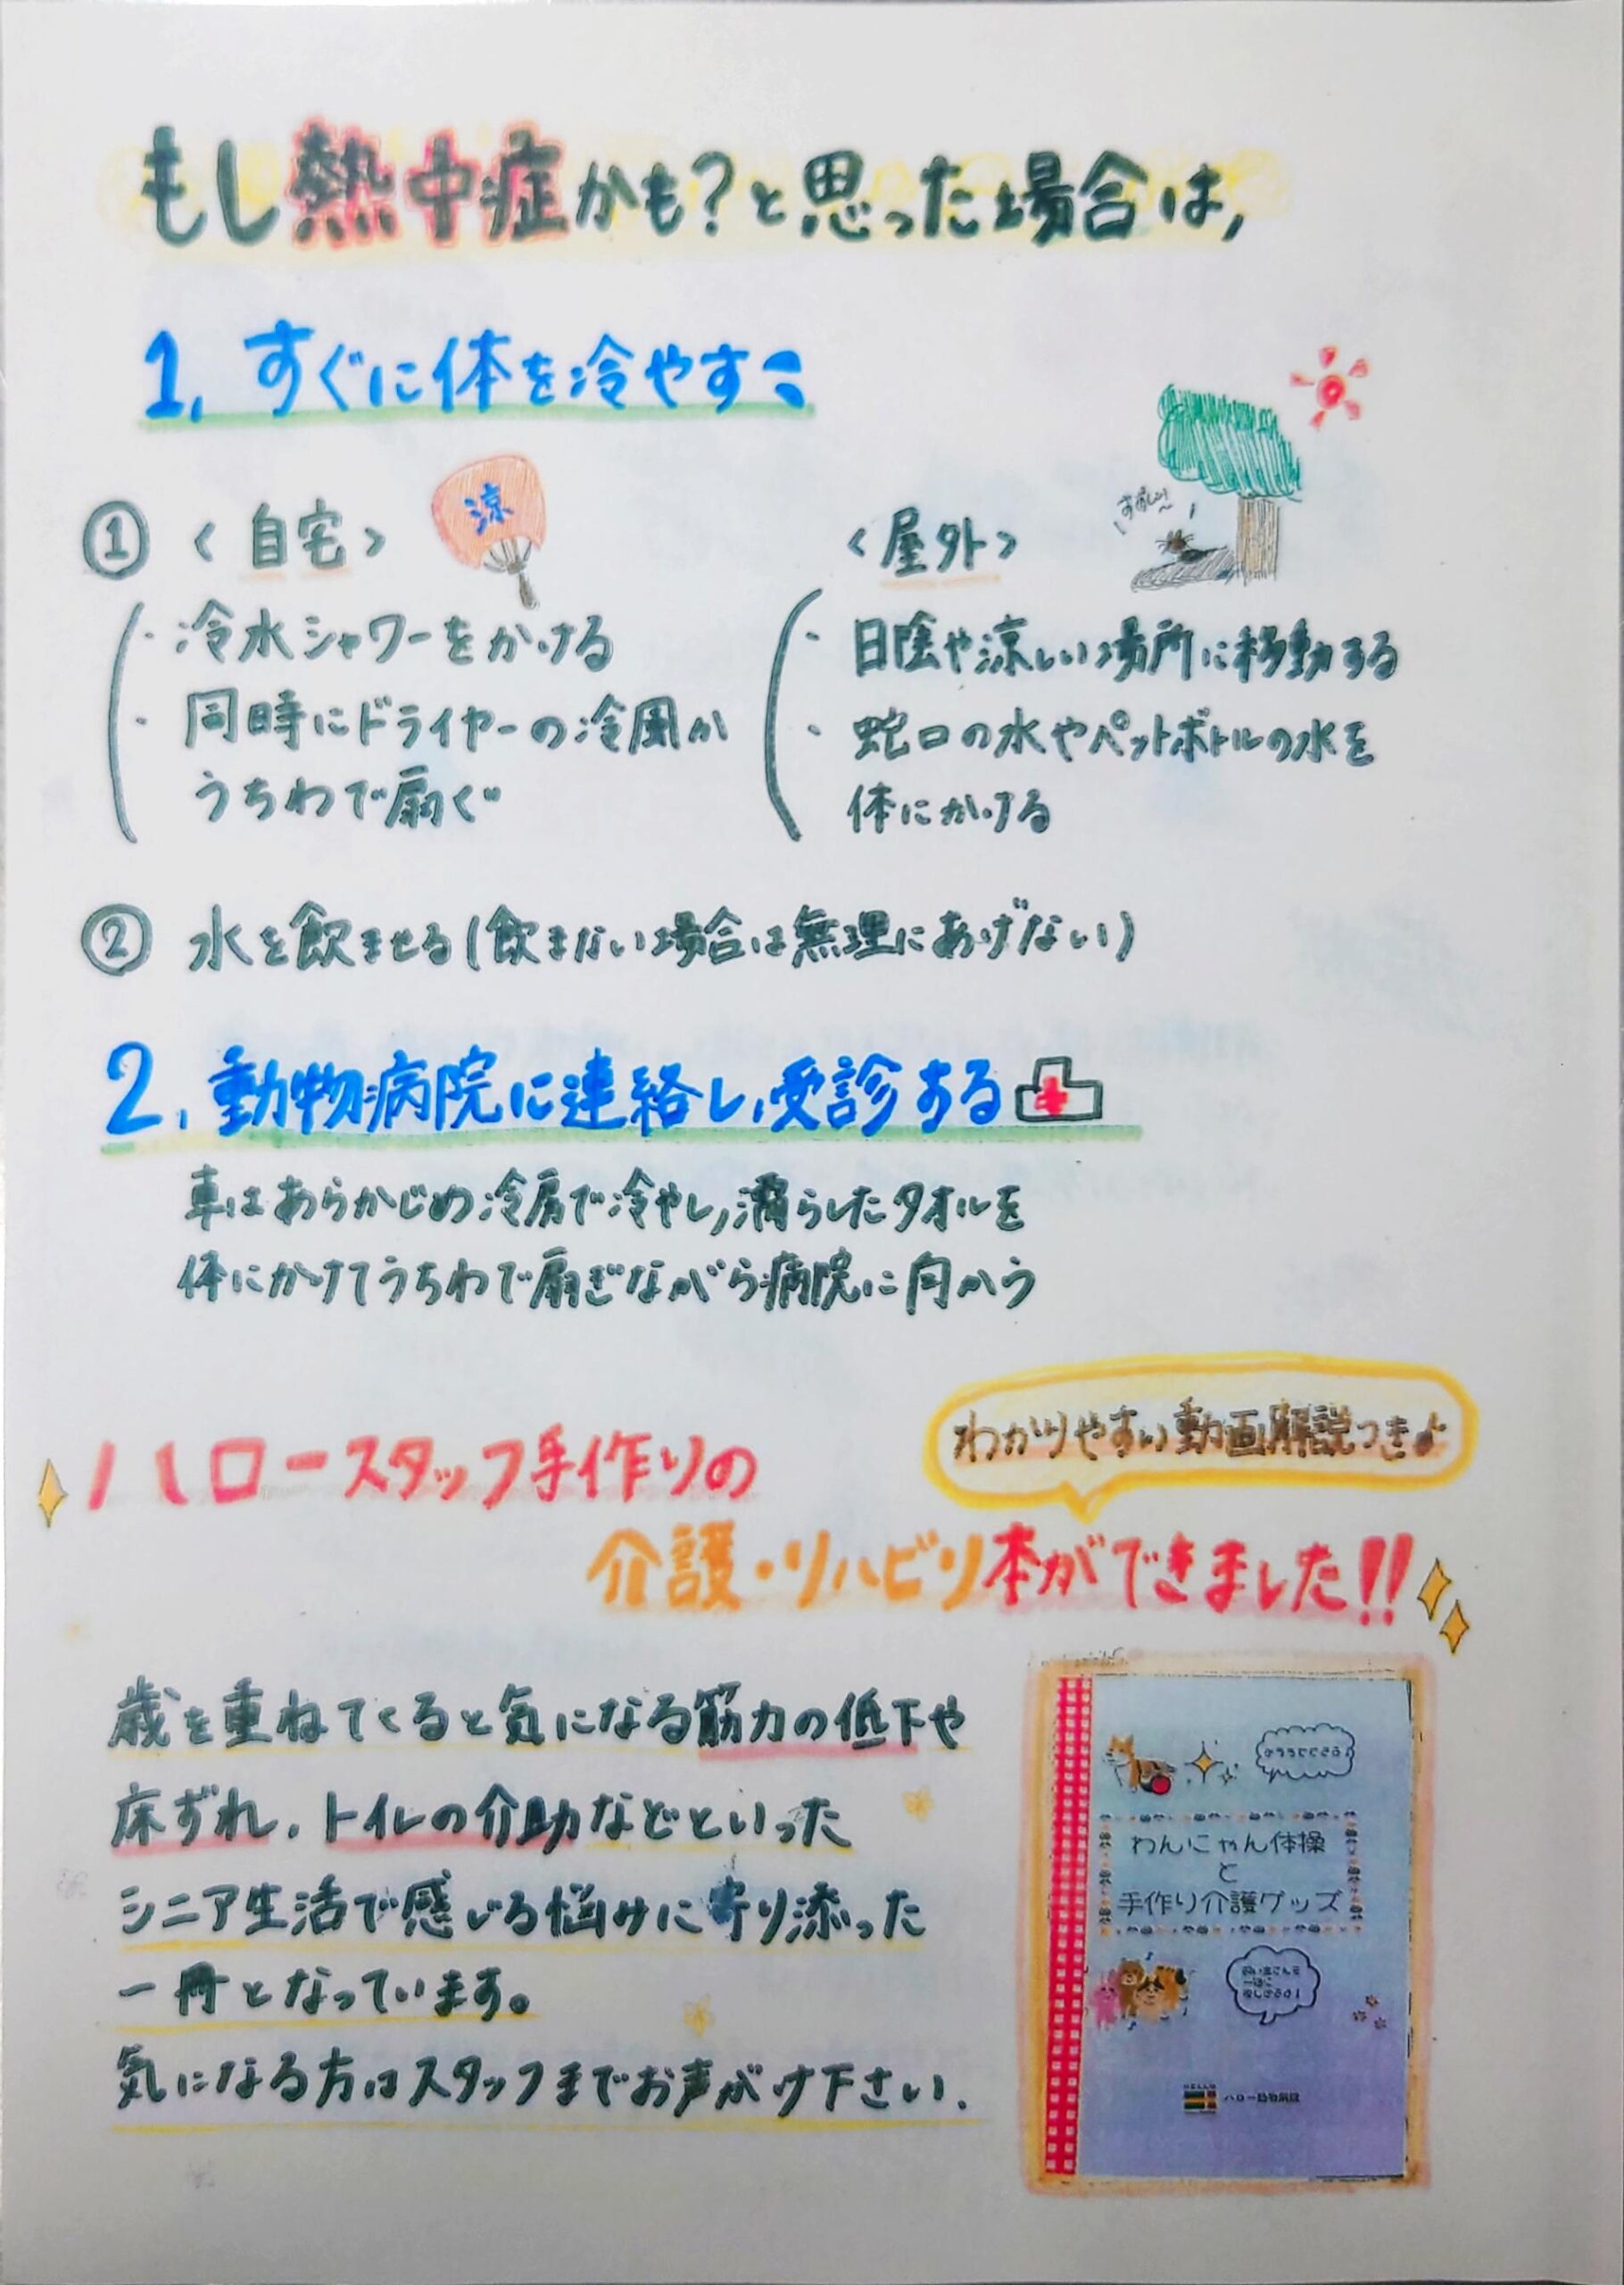 もし熱中症かも?と思った場合は,
1. すぐに体を冷やす
① <自宅>
涼
・冷水シャワーをかける
・同時にドライヤーの冷風か
うちわで扇ぐ
<屋外>
すずしい〜
・日陰や涼しい場所に移動する
・蛇口の水やペットボトルの水を
体にかける
② 水を飲ませる(飲まない場合は無理にあげない)
2. 動物病院に連絡し、受診する
車はあらかじめ冷房で冷やし,濡らしたタオルを
体にかけてうちわで扇ぎながら病院に向かう
わかりやすい動画解説つき♪
ハロースタッフ手作りの
介護・リハビリ本ができました!!
歳を重ねてくると気になる筋力の低下や
床ずれ、トイレの介助などといった
シニア生活で感じる悩みに寄り添った
一冊となっています。
気になる方はスタッフまでお声がけ下さい.
わんにゃん体操
と
手作り介護グッズ
HELLO
ハロー動物病院